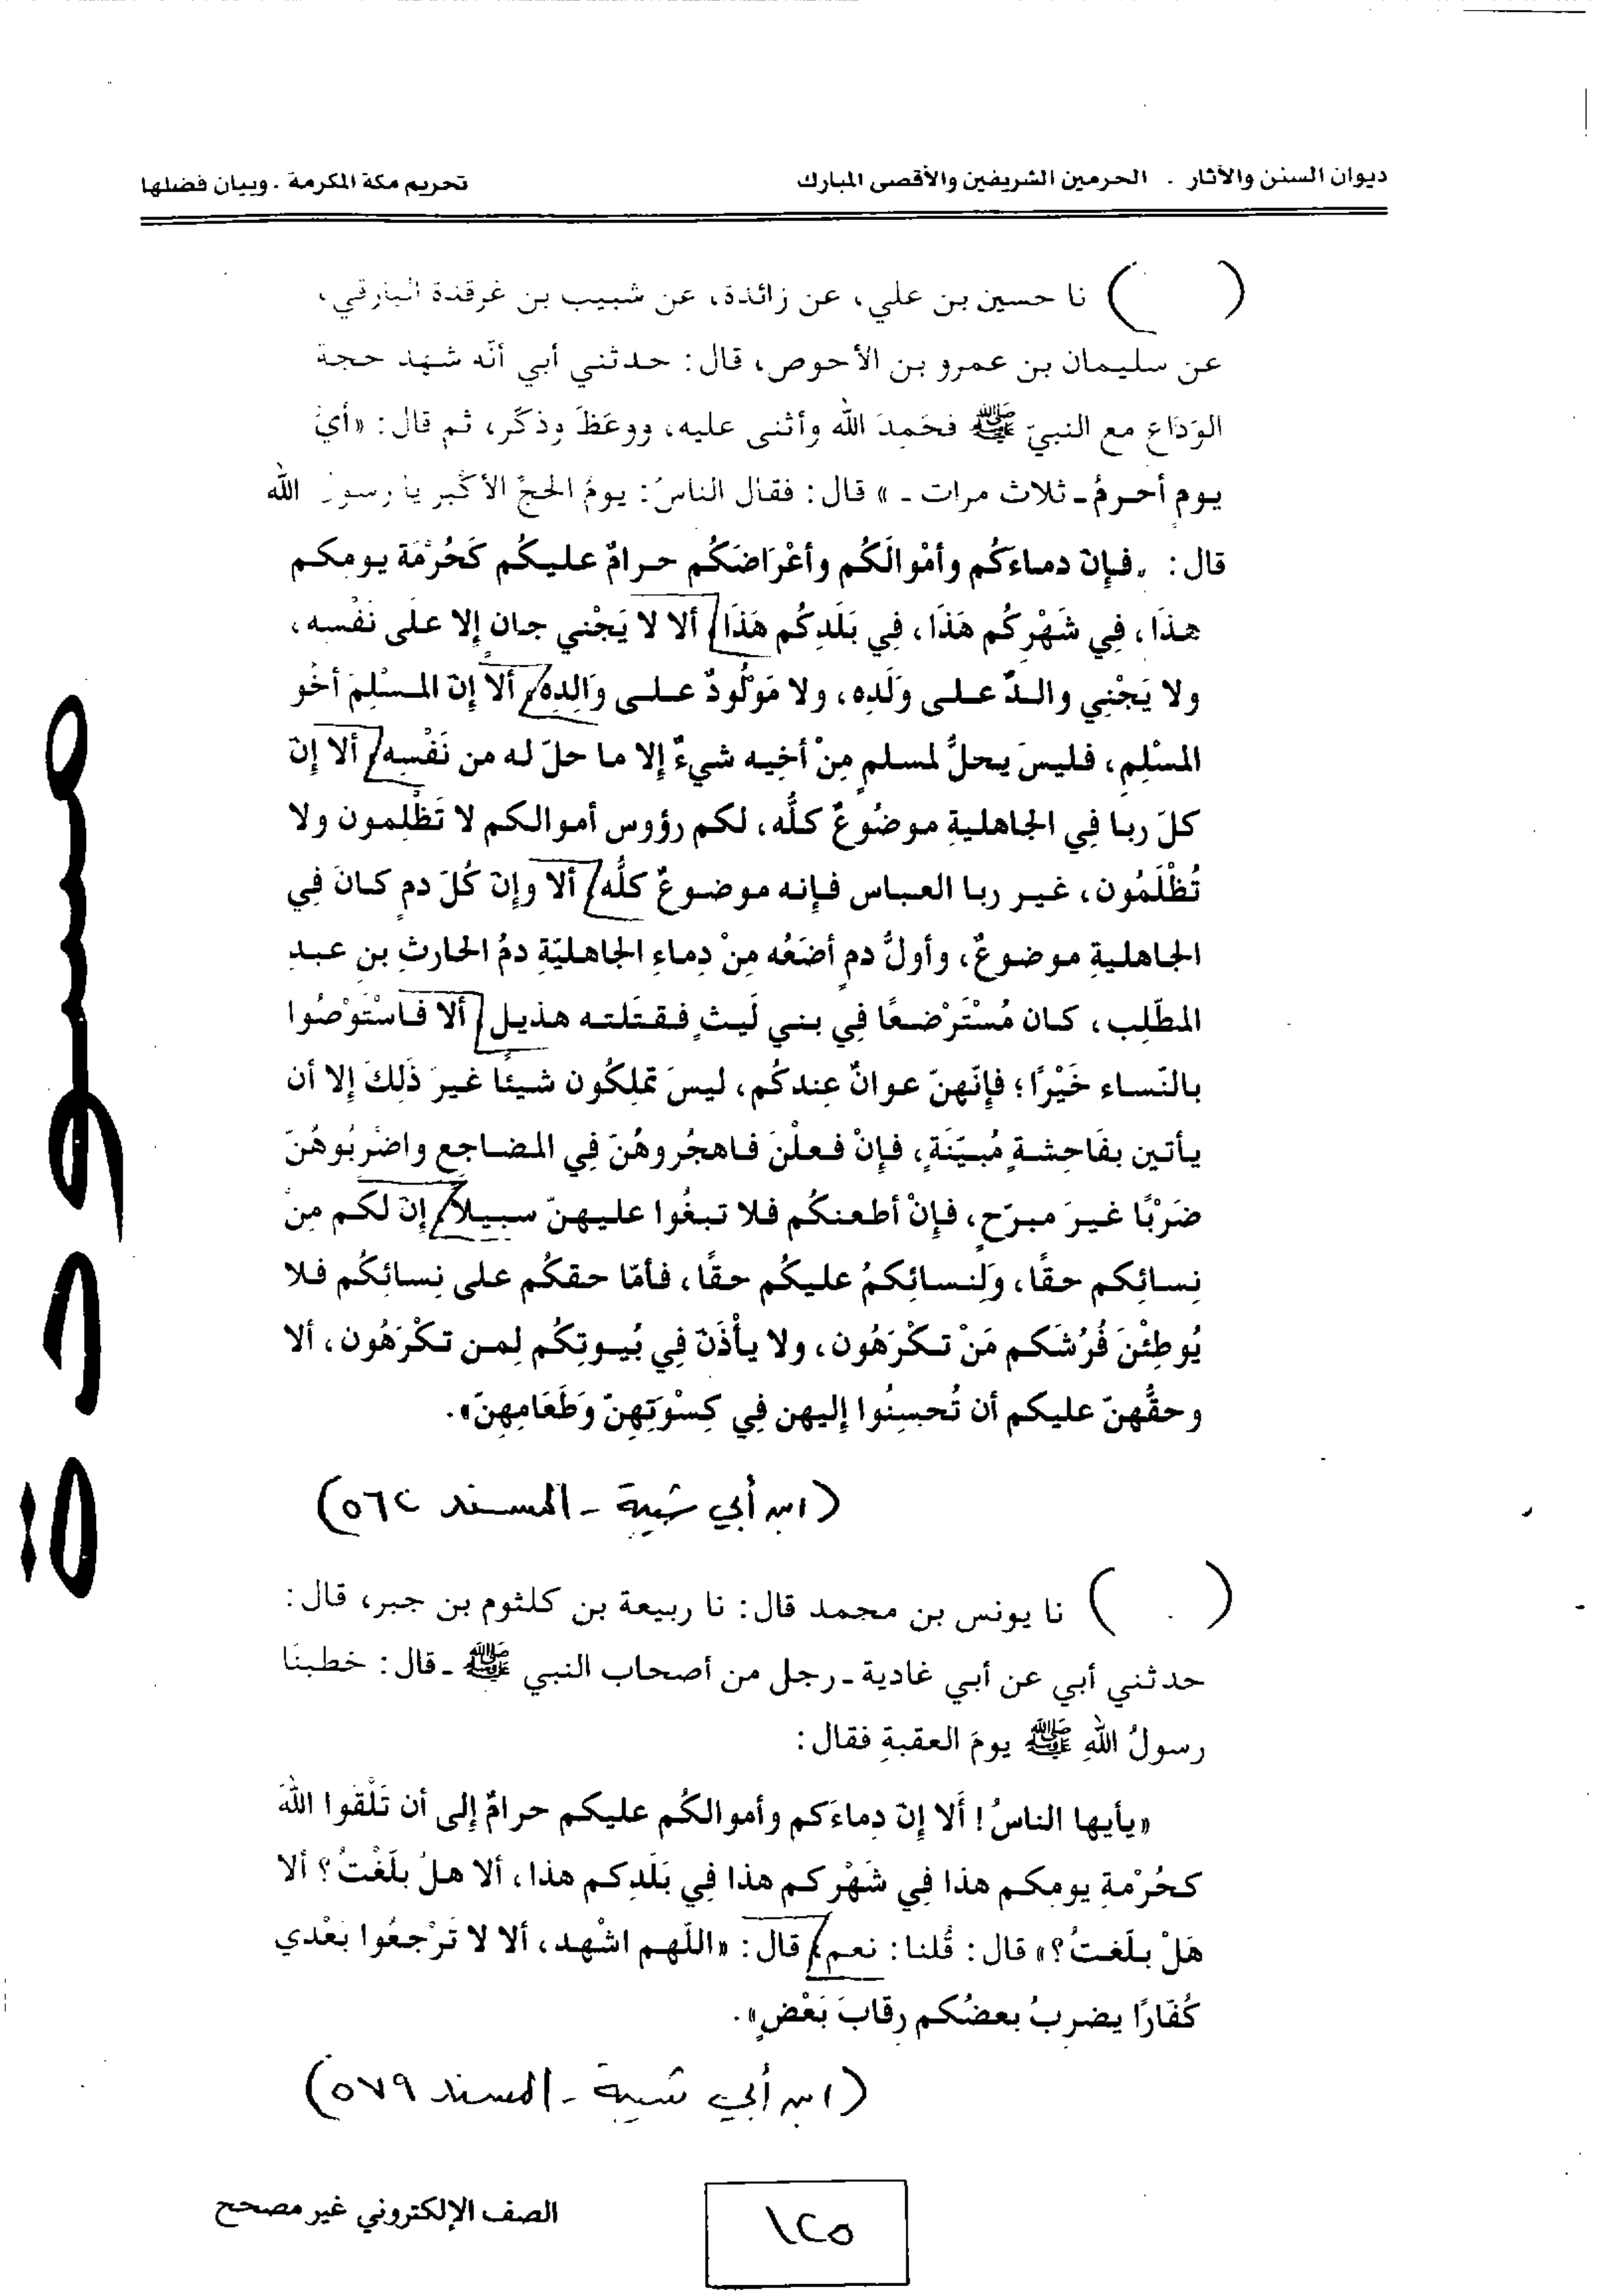 ديوان السنن والآثار . الحرمين الشريفين والأقصى المبارك
تحريم مكة المكرمة . وبيان فضلها
( ) نا حسين بن علي، عن زائدة، عن شبيب بن غرقدة البارقي،
عن سليمان بن عمرو بن الأحوص، قال: حدثني أبي أنّه شهد حجة
الوَدَاع مع النبيّ ﷺ فحَمِدَ الله وأثنى عليه، ووعَظَ وذكّر، ثم قال: «أيّ
يوم أحرمُ ـ ثلاث مرات ـ» قال: فقال الناسُ: يومُ الحجّ الأكبر يا رسول الله
قال: «فإنّ دماءَكُم وأمْوالَكُم وأعْرَاضَكُم حرامٌ عليكُم كَحُرْمَة يومِكم
هذَا، فِي شَهْرِكُم هَذَا، فِي بَلَدِكُم هَذَا، ألا لا يَجْني جانٍ إلا علَى نَفْسه،
ولا يَجْنِي والدٌ على وَلَدِه، ولا مَوْلُودٌ على وَالِدِه، ألا إنّ المسْلِمَ أخُو
المسْلِمِ، فليسَ يحلُّ لمسلمٍ مِنْ أخِيه شيءٌ إلا ما حلّ له من نَفْسِه، ألا إنّ
كلّ ربا فِي الجاهليةِ موضُوعٌ كلُّه، لكم رؤوس أموالكم لا تَظْلِمون ولا
تُظْلَمُون، غير ربا العباس فإنه موضوعٌ كلُّه، ألا وإنّ كُلّ دمٍ كانَ فِي
الجاهليةِ موضوعٌ، وأولُّ دمٍ أضَعُه مِنْ دِماءِ الجاهليّةِ دمُ الحارثِ بنِ عبدِ
المطّلِب، كان مُسْتَرْضعًا فِي بني لَيثٍ فقتَلته هذيل، ألا فاسْتَوْصُوا
بالنّساء خَيْرًا؛ فإنّهنّ عوانٌ عِندكُم، ليسَ تملِكُون شيئًا غيرَ ذَلِكَ إلا أن
يأتين بفَاحِشةٍ مُبيّنَةٍ، فإنْ فعلْنَ فاهجُروهُنّ فِي المضاجعِ واضْرِبُوهُنّ
ضَرْبًا غيرَ مبرّحٍ، فإنْ أطعنكُم فلا تبغُوا عليهنّ سبيلاً، إنّ لكم مِنْ
نِسائِكم حقًّا، وَلِنسائِكمُ عليكُم حقًّا، فأمّا حقكُم على نِسائِكُم فلا
يُوطِئْنَ فُرُشَكم مَنْ تكْرَهُون، ولا يأْذَنّ فِي بُيوتِكُم لِمن تكْرَهُون، ألا
وحقُّهنّ عليكم أن تُحسِنُوا إليهن فِي كِسْوَتِهِنّ وَطَعَامِهِنّ».
(ابن أبي شيبة ـ المسند ٥٦٢)
( ) نا يونس بن محمد قال: نا ربيعة بن كلثوم بن جبر، قال:
حدثني أبي عن أبي غادية ـ رجل من أصحاب النبي ﷺ ـ قال: خطبنَا
رسولُ اللهِ ﷺ يومَ العقبةِ فقال:
«يأيها الناسُ! أَلا إنّ دِماءَكم وأموالكُم عليكم حرامٌ إلى أن تَلْقَوا اللهَ
كحُرْمةِ يومِكم هذا فِي شَهْرِكم هذا فِي بَلَدِكم هذا، ألا هلْ بلّغْتُ؟ ألا
هَلْ بلّغتُ؟» قال: قُلنا: نعم، قال: «اللّهم اشْهد، ألا لا تَرْجعُوا بَعْدي
كُفّارًا يضربُ بعضُكم رقابَ بَعْضٍ».
(ابن أبي شيبة ـ المسند ٥٧٩)
الصف الإلكتروني غير مصحح
١٢٥
مسودة